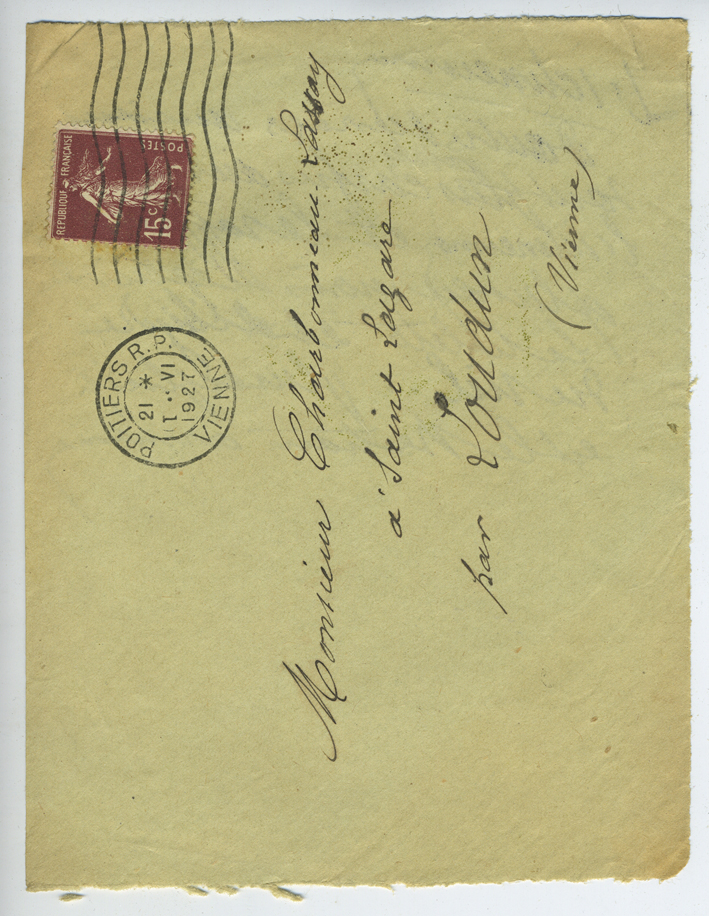 REPUBLIQUE FRANÇAISE
POSTES
15c
POITIERS R.P.
21 *
1 - VI
1927
VIENNE
Monsieur Charbonneau-Lassay
à Saint Lazare
par Loudun
(Vienne)